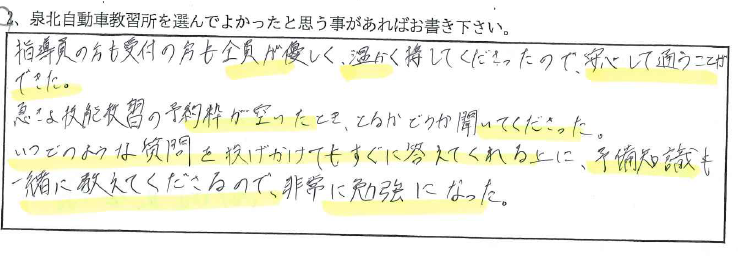 2、泉北自動車教習所を選んでよかったと思う事があればお書き下さい。
指導員の方も受付の方も全員が優しく、温かく接してくださったので、安心して通うことが
できた。
急きょ技能教習の予約枠が空いたとき、とるかどうか聞いてくださった。
いつどのような質問を投げかけてもすぐに答えてくれる上に、予備知識も
一緒に教えてくださるので、非常に勉強になった。